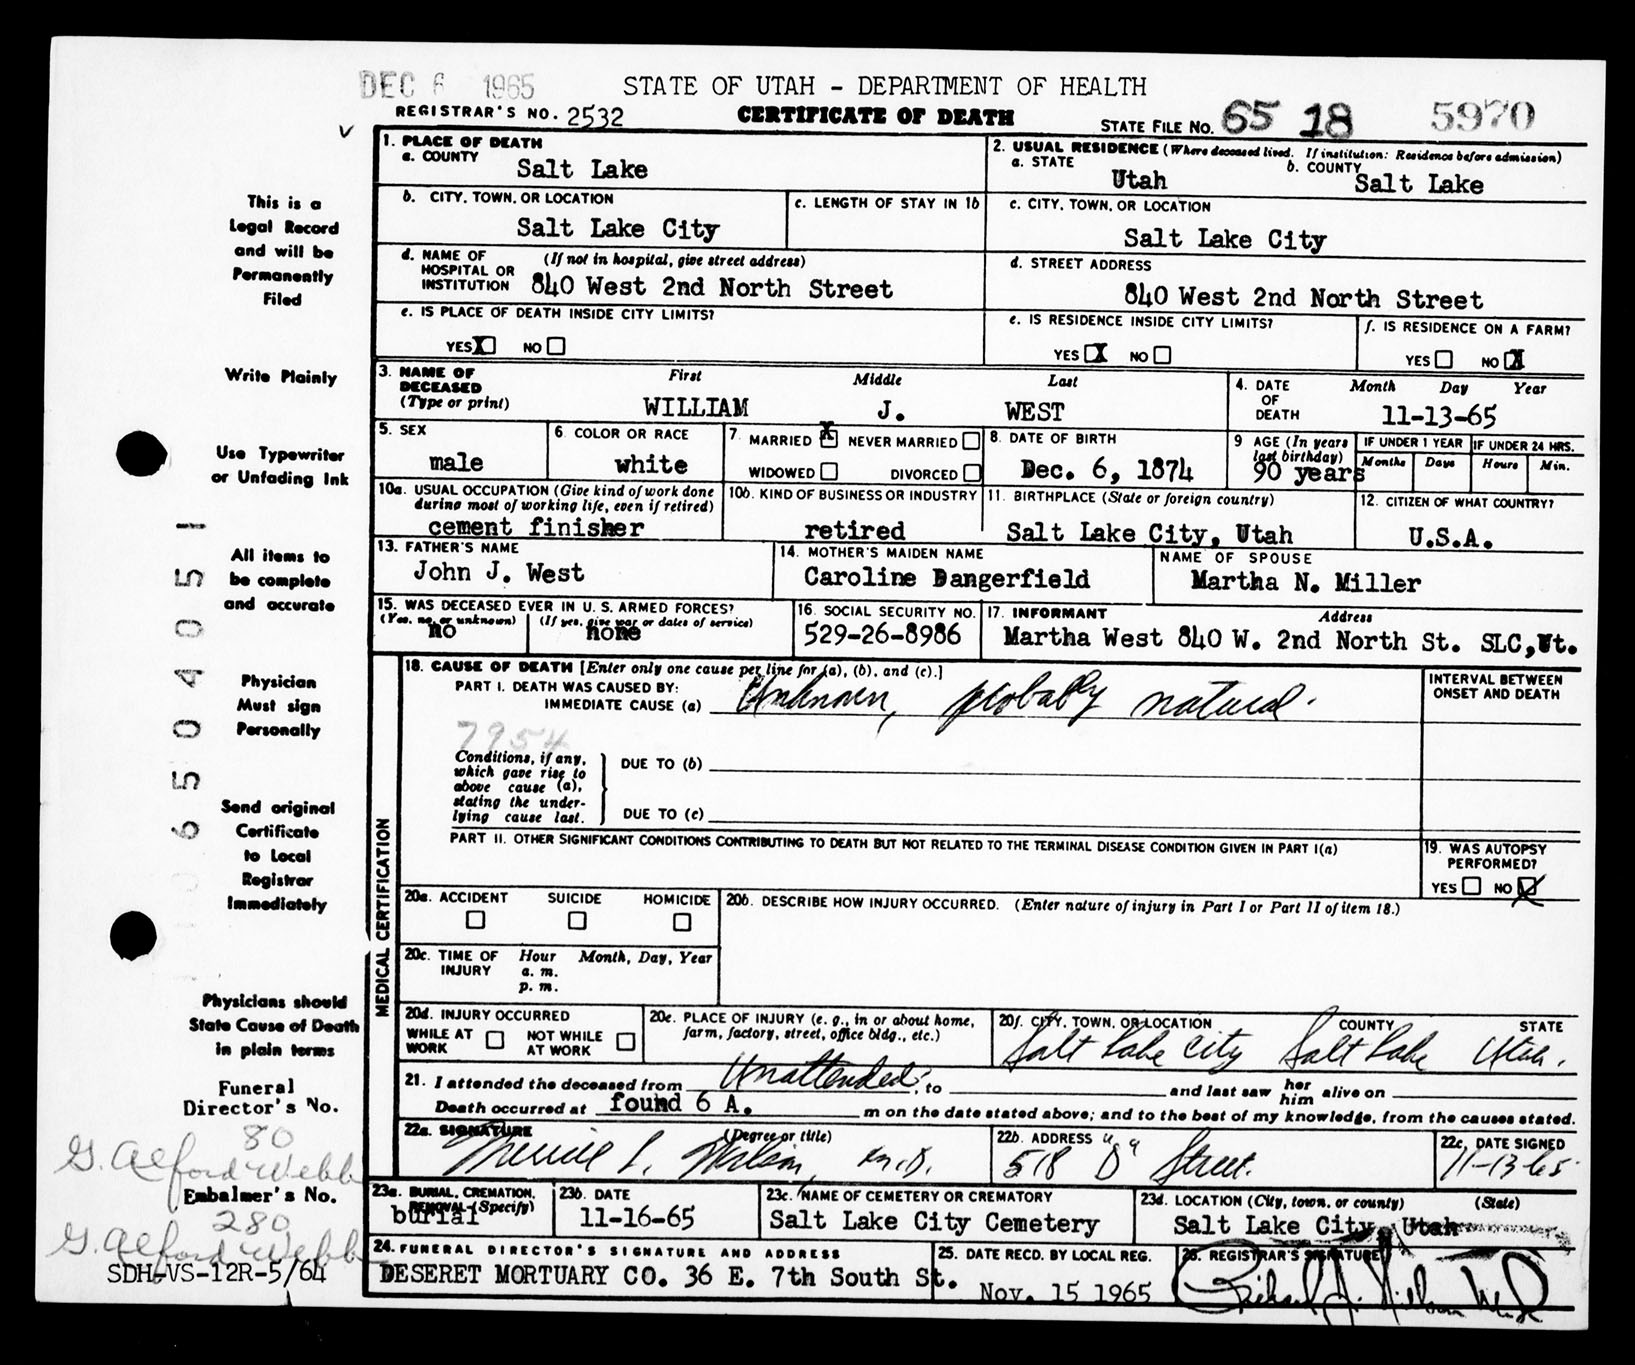 DEC 6 1965
STATE OF UTAH - DEPARTMENT OF HEALTH
REGISTRAR'S NO. 2532
CERTIFICATE OF DEATH
STATE FILE NO. 65 18 5970
This is a
Legal Record
and will be
Permanently
Filed
Write Plainly
Use Typewriter
or Unfading Ink
All items to
be complete
and accurate
Physician
Must sign
Personally
Send original
Certificate
to Local
Registrar
Immediately
Physicians should
State Cause of Death
in plain terms
Funeral
Director's No.
80
G. Alford Webb
Embalmer's No.
280
G. Alford Webb
SDH-VS-12R-5/64
6504051
1. PLACE OF DEATH
a. COUNTY
Salt Lake
2. USUAL RESIDENCE (Where deceased lived. If institution: Residence before admission)
a. STATE
Utah
b. COUNTY
Salt Lake
b. CITY, TOWN, OR LOCATION
Salt Lake City
c. LENGTH OF STAY IN 1b
c. CITY, TOWN, OR LOCATION
Salt Lake City
d. NAME OF HOSPITAL OR INSTITUTION
(If not in hospital, give street address)
840 West 2nd North Street
d. STREET ADDRESS
840 West 2nd North Street
e. IS PLACE OF DEATH INSIDE CITY LIMITS?
YES X NO
e. IS RESIDENCE INSIDE CITY LIMITS?
YES X NO
f. IS RESIDENCE ON A FARM?
YES NO X
3. NAME OF
DECEASED
(Type or print)
First Middle Last
WILLIAM J. WEST
4. DATE
OF
DEATH
Month Day Year
11-13-65
5. SEX
male
6. COLOR OR RACE
white
7. MARRIED X NEVER MARRIED
WIDOWED DIVORCED
8. DATE OF BIRTH
Dec. 6, 1874
9 AGE (In years
last birthday)
90 years
IF UNDER 1 YEAR
Months Days
IF UNDER 24 HRS.
Hours Min.
10a. USUAL OCCUPATION (Give kind of work done
during most of working life, even if retired)
cement finisher
10b. KIND OF BUSINESS OR INDUSTRY
retired
11. BIRTHPLACE (State or foreign country)
Salt Lake City, Utah
12. CITIZEN OF WHAT COUNTRY?
U.S.A.
13. FATHER'S NAME
John J. West
14. MOTHER'S MAIDEN NAME
Caroline Dangerfield
NAME OF SPOUSE
Martha N. Miller
15. WAS DECEASED EVER IN U. S. ARMED FORCES?
(Yes, no, or unknown) (If yes, give war or dates of service)
no none
16. SOCIAL SECURITY NO.
529-26-8986
17. INFORMANT Address
Martha West 840 W. 2nd North St. SLC, Ut.
MEDICAL CERTIFICATION
18. CAUSE OF DEATH [Enter only one cause per line for (a), (b), and (c).]
PART I. DEATH WAS CAUSED BY:
IMMEDIATE CAUSE (a) Unknown, probably natural.
INTERVAL BETWEEN
ONSET AND DEATH
7954
Conditions, if any,
which gave rise to
above cause (a),
stating the under-
lying cause last.
DUE TO (b)
DUE TO (c)
PART II. OTHER SIGNIFICANT CONDITIONS CONTRIBUTING TO DEATH BUT NOT RELATED TO THE TERMINAL DISEASE CONDITION GIVEN IN PART I(a)
19. WAS AUTOPSY
PERFORMED?
YES NO X
20a. ACCIDENT SUICIDE HOMICIDE
20b. DESCRIBE HOW INJURY OCCURRED. (Enter nature of injury in Part I or Part II of item 18.)
20c. TIME OF
INJURY
Hour Month, Day, Year
a. m.
p. m.
20d. INJURY OCCURRED
WHILE AT
WORK
NOT WHILE
AT WORK
20e. PLACE OF INJURY (e. g., in or about home,
farm, factory, street, office bldg., etc.)
20f. CITY, TOWN, OR LOCATION COUNTY STATE
Salt Lake City Salt Lake Utah.
21. I attended the deceased from Unattended, to and last saw her him alive on
Death occurred at found 6 A. m on the date stated above; and to the best of my knowledge, from the causes stated.
22a. SIGNATURE (Degree or title)
Merrill L. Wilson, M.D.
22b. ADDRESS
518 "D" Street.
22c. DATE SIGNED
11-13-65
23a. BURIAL, CREMATION,
REMOVAL (Specify)
burial
23b. DATE
11-16-65
23c. NAME OF CEMETERY OR CREMATORY
Salt Lake City Cemetery
23d. LOCATION (City, town, or county) (State)
Salt Lake City, Utah
24. FUNERAL DIRECTOR'S SIGNATURE AND ADDRESS
DESERET MORTUARY CO. 36 E. 7th South St.
25. DATE RECD. BY LOCAL REG.
Nov. 15 1965
26. REGISTRAR'S SIGNATURE